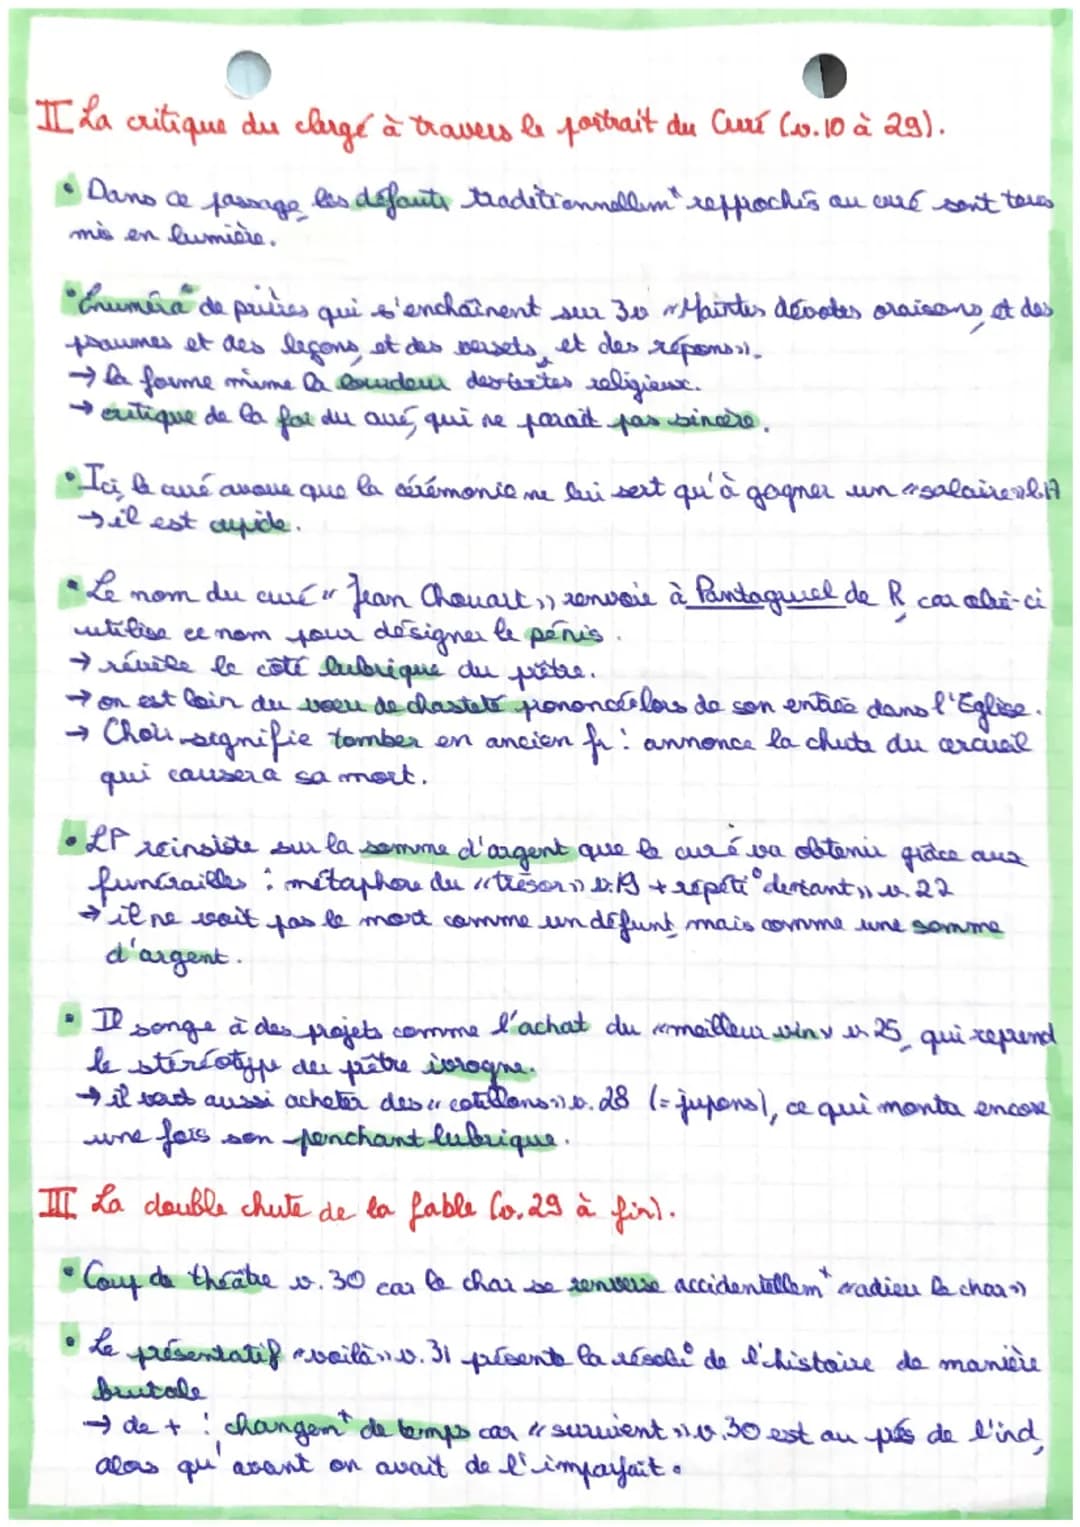 II La critique du clergé à travers le portrait du Curé (v.10 à 29).
• Dans ce passage, les défauts traditionnellemt repprochés au curé sont tous
mis en lumière.
• Enumérao de prières qui s'enchaînent sur 3v « Maintes dévotes oraisons, et des
psaumes et des leçons, et des versets, et des répons».
→ la forme mime la lourdeur des textes religieux.
→ critique de la foi du curé, qui ne parait pas sincère.
• Ici, le curé avoue que la cérémonie ne lui sert qu'à gagner un «salaire» l.17
→ il est cupide.
• Le nom du curé « Jean Chouart » renvoie à Pantagruel de R, car celui-ci
utilise ce nom pour désigner le pénis.
→ révèle le côté lubrique du prêtre.
→ on est loin du voeu de chasteté prononcé lors de son entrée dans l'Eglise.
→ Choir signifie tomber en ancien fr : annonce la chute du cercueil
qui causera sa mort.
• LF reinsiste sur la somme d'argent que le curé va obtenir grâce aux
funérailles : métaphore du «trésor» v.19 + répétio de «tant» v. 22
→ il ne voit pas le mort comme un défunt, mais comme une somme
d'argent.
• Il songe à des projets comme l'achat du «meilleur vin» v. 25, qui reprend
le stéréotype du prêtre ivrogne.
→ il aussi acheter des « cotillons » v. 28 (= jupons), ce qui montre encore
une fois son penchant lubrique.
III La double chute de la fable (v.29 à fin).
• Coup de théâtre v. 30 car le char se renverse accidentellemt «adieu le char»
• Le présentatif «voilà» v. 31 présente la résoluo de l'histoire de manière
brutale
→ de + : changemt de temps car « survient » v.30 est au prés de l'ind,
alors qu'avant on avait de l'imparfait.